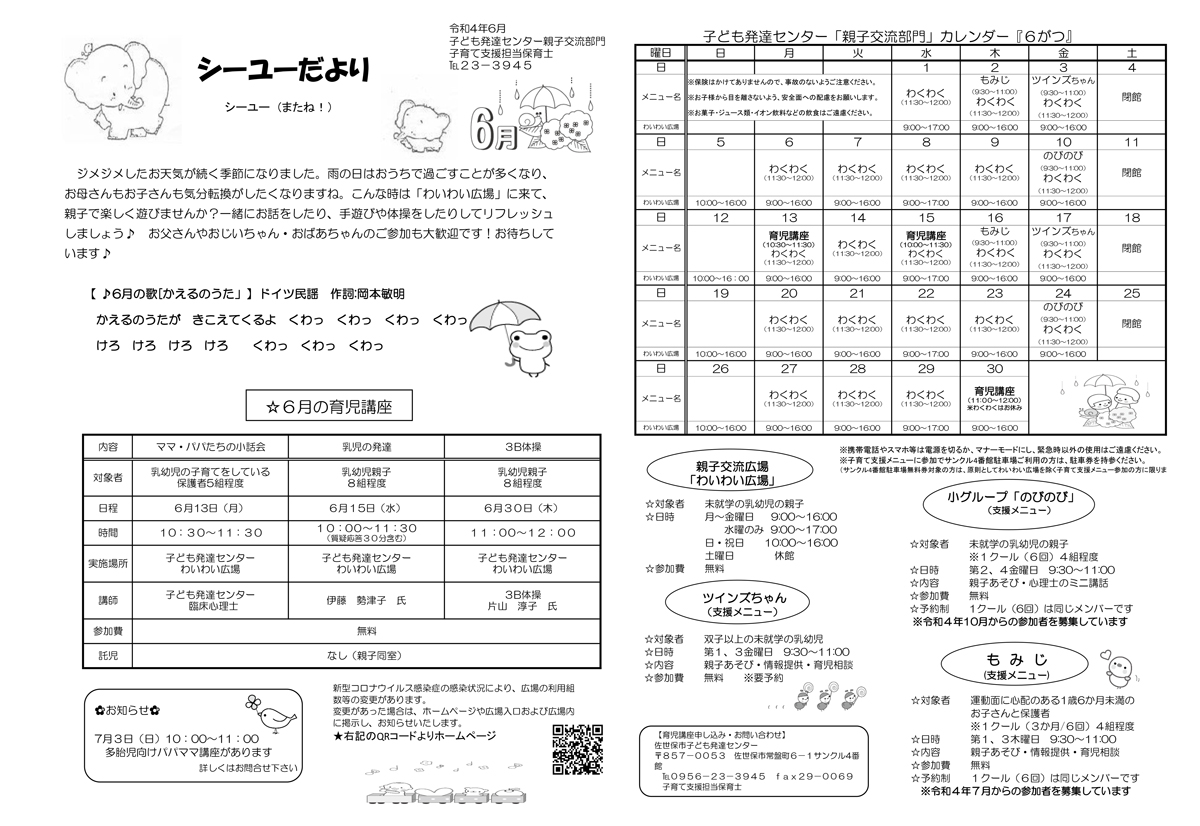 シーユーだより
シーユー（またね！）
令和4年6月
子ども発達センター親子交流部門
子育て支援担当保育士
℡２３－３９４５
6月
ジメジメしたお天気が続く季節になりました。雨の日はおうちで過ごすことが多くなり、
お母さんもお子さんも気分転換がしたくなりますね。こんな時は「わいわい広場」に来て、
親子で楽しく遊びませんか？一緒にお話をしたり、手遊びや体操をしたりしてリフレッシュ
しましょう♪　お父さんやおじいちゃん・おばあちゃんのご参加も大歓迎です！お待ちして
います♪
【 ♪6月の歌[かえるのうた」】ドイツ民謡　作詞:岡本敏明
かえるのうたが　きこえてくるよ　くわっ　くわっ　くわっ　くわっ
けろ　けろ　けろ　けろ　　くわっ　くわっ　くわっ
☆６月の育児講座
内容　ママ・パパたちの小話会　乳児の発達　３B体操
対象者　乳幼児の子育てをしている　乳幼児親子　乳幼児親子
保護者5組程度　８組程度　８組程度
日程　６月13日（月）　６月１５日（水）　６月３０日（木）
時間　１０：３０～１１：３０　１０：００～１１：３０　１１：００～１２：００
（質疑応答３０分含む）
実施場所　子ども発達センター　子ども発達センター　子ども発達センター
わいわい広場　わいわい広場　わいわい広場
講師　子ども発達センター　伊藤　勢津子　氏　３B体操
臨床心理士　片山　淳子　氏
参加費　無料
託児　なし（親子同室）
✿お知らせ✿
７月３日（日）１０：００～１１：００
多胎児向けパパママ講座があります
詳しくはお問合せ下さい
新型コロナウイルス感染症の感染状況により、広場の利用組
数等の変更があります。
変更があった場合は、ホームページや広場入口および広場内
に掲示し、お知らせいたします。
★右記のQRコードよりホームページ
子ども発達センター「親子交流部門」カレンダー『６がつ』
曜日　日　月　火　水　木　金　土
日　1　2　3　4
メニュー名
※保険はかけてありませんので、事故のないようご注意ください。
※お子様から目を離さないよう、安全面への配慮をお願いします。
※お菓子・ジュース類・イオン飲料などの飲食はご遠慮ください。
わくわく
(11:30～12:00)
もみじ
(9:30～11:00)
わくわく
(11:30～12:00)
ツインズちゃん
(9:30～11:00)
わくわく
(11:30～12:00)
閉館
わいわい広場　9:00～17:00　9:00～16:00　9:00～16:00
日　5　6　7　8　9　10　11
メニュー名
わくわく
(11:30～12:00)
わくわく
(11:30～12:00)
わくわく
(11:30～12:00)
わくわく
(11:30～12:00)
のびのび
(9:30～11:00)
わくわく
(11:30～12:00)
閉館
わいわい広場　10:00～16:00　9:00～16:00　9:00～16:00　9:00～17:00　9:00～16:00　9:00～16:00
日　12　13　14　15　16　17　18
メニュー名
育児講座
(10:30～11:30)
わくわく
(11:30～12:00)
わくわく
(11:30～12:00)
育児講座
(10:00～11:30)
わくわく
(11:30～12:00)
もみじ
(9:30～11:00)
わくわく
(11:30～12:00)
ツインズちゃん
(9:30～11:00)
わくわく
(11:30～12:00)
閉館
わいわい広場　10:00～16：00　9:00～16:00　9:00～16:00　9:00～17:00　9:00～16:00　9:00～16:00
日　19　20　21　22　23　24　25
メニュー名
わくわく
(11:30～12:00)
わくわく
(11:30～12:00)
わくわく
(11:30～12:00)
わくわく
(11:30～12:00)
のびのび
(9:30～11:00)
わくわく
(11:30～12:00)
閉館
わいわい広場　10:00～16:00　9:00～16:00　9:00～16:00　9:00～17:00　9:00～16:00　9:00～16:00
日　26　27　28　29　30
メニュー名
わくわく
(11:30～12:00)
わくわく
(11:30～12:00)
わくわく
(11:30～12:00)
育児講座
(11:00～12:00)
※わくわくはお休み
わいわい広場　10:00～16:00　9:00～16:00　9:00～16:00　9:00～17:00　9:00～16:00
※携帯電話やスマホ等は電源を切るか、マナーモードにし、緊急時以外の使用はご遠慮ください。
※子育て支援メニューに参加でサンクル4番館駐車場ご利用の方は、駐車券を持参ください。
（サンクル4番館駐車場無料券対象の方は、原則としてわいわい広場を除く子育て支援メニュー参加の方に限りま
親子交流広場
「わいわい広場」
☆対象者　未就学の乳幼児の親子
☆日時　月～金曜日　9:00～16:00
水曜のみ　9:00～17:00
日・祝日　10:00～16:00
土曜日　休館
☆参加費　無料
ツインズちゃん
（支援メニュー）
☆対象者　双子以上の未就学の乳幼児
☆日時　第１、３金曜日　9:30～11:00
☆内容　親子あそび・情報提供・育児相談
☆参加費　無料　※要予約
【育児講座申し込み・お問い合わせ】
佐世保市子ども発達センター
〒８５７－００５３　佐世保市常盤町６－１サンクル4番
館
℡０９５６－２３－３９４５　ｆａｘ２９－００６９
子育て支援担当保育士
小グループ「のびのび」
（支援メニュー）
☆対象者　未就学の乳幼児の親子
※１クール（６回）４組程度
☆日時　第２、４金曜日　9:30～11:00
☆内容　親子あそび・心理士のミニ講話
☆参加費　無料
☆予約制　１クール（６回）は同じメンバーです
※令和４年10月からの参加者を募集しています
もみじ
(支援メニュー)
☆対象者　運動面に心配のある１歳６か月未満の
お子さんと保護者
※１クール（３か月/６回）４組程度
☆日時　第１、３木曜日　9:30～11:00
☆内容　親子あそび・情報提供・育児相談
☆参加費　無料
☆予約制　１クール（６回）は同じメンバーです
※令和４年７月からの参加者を募集しています